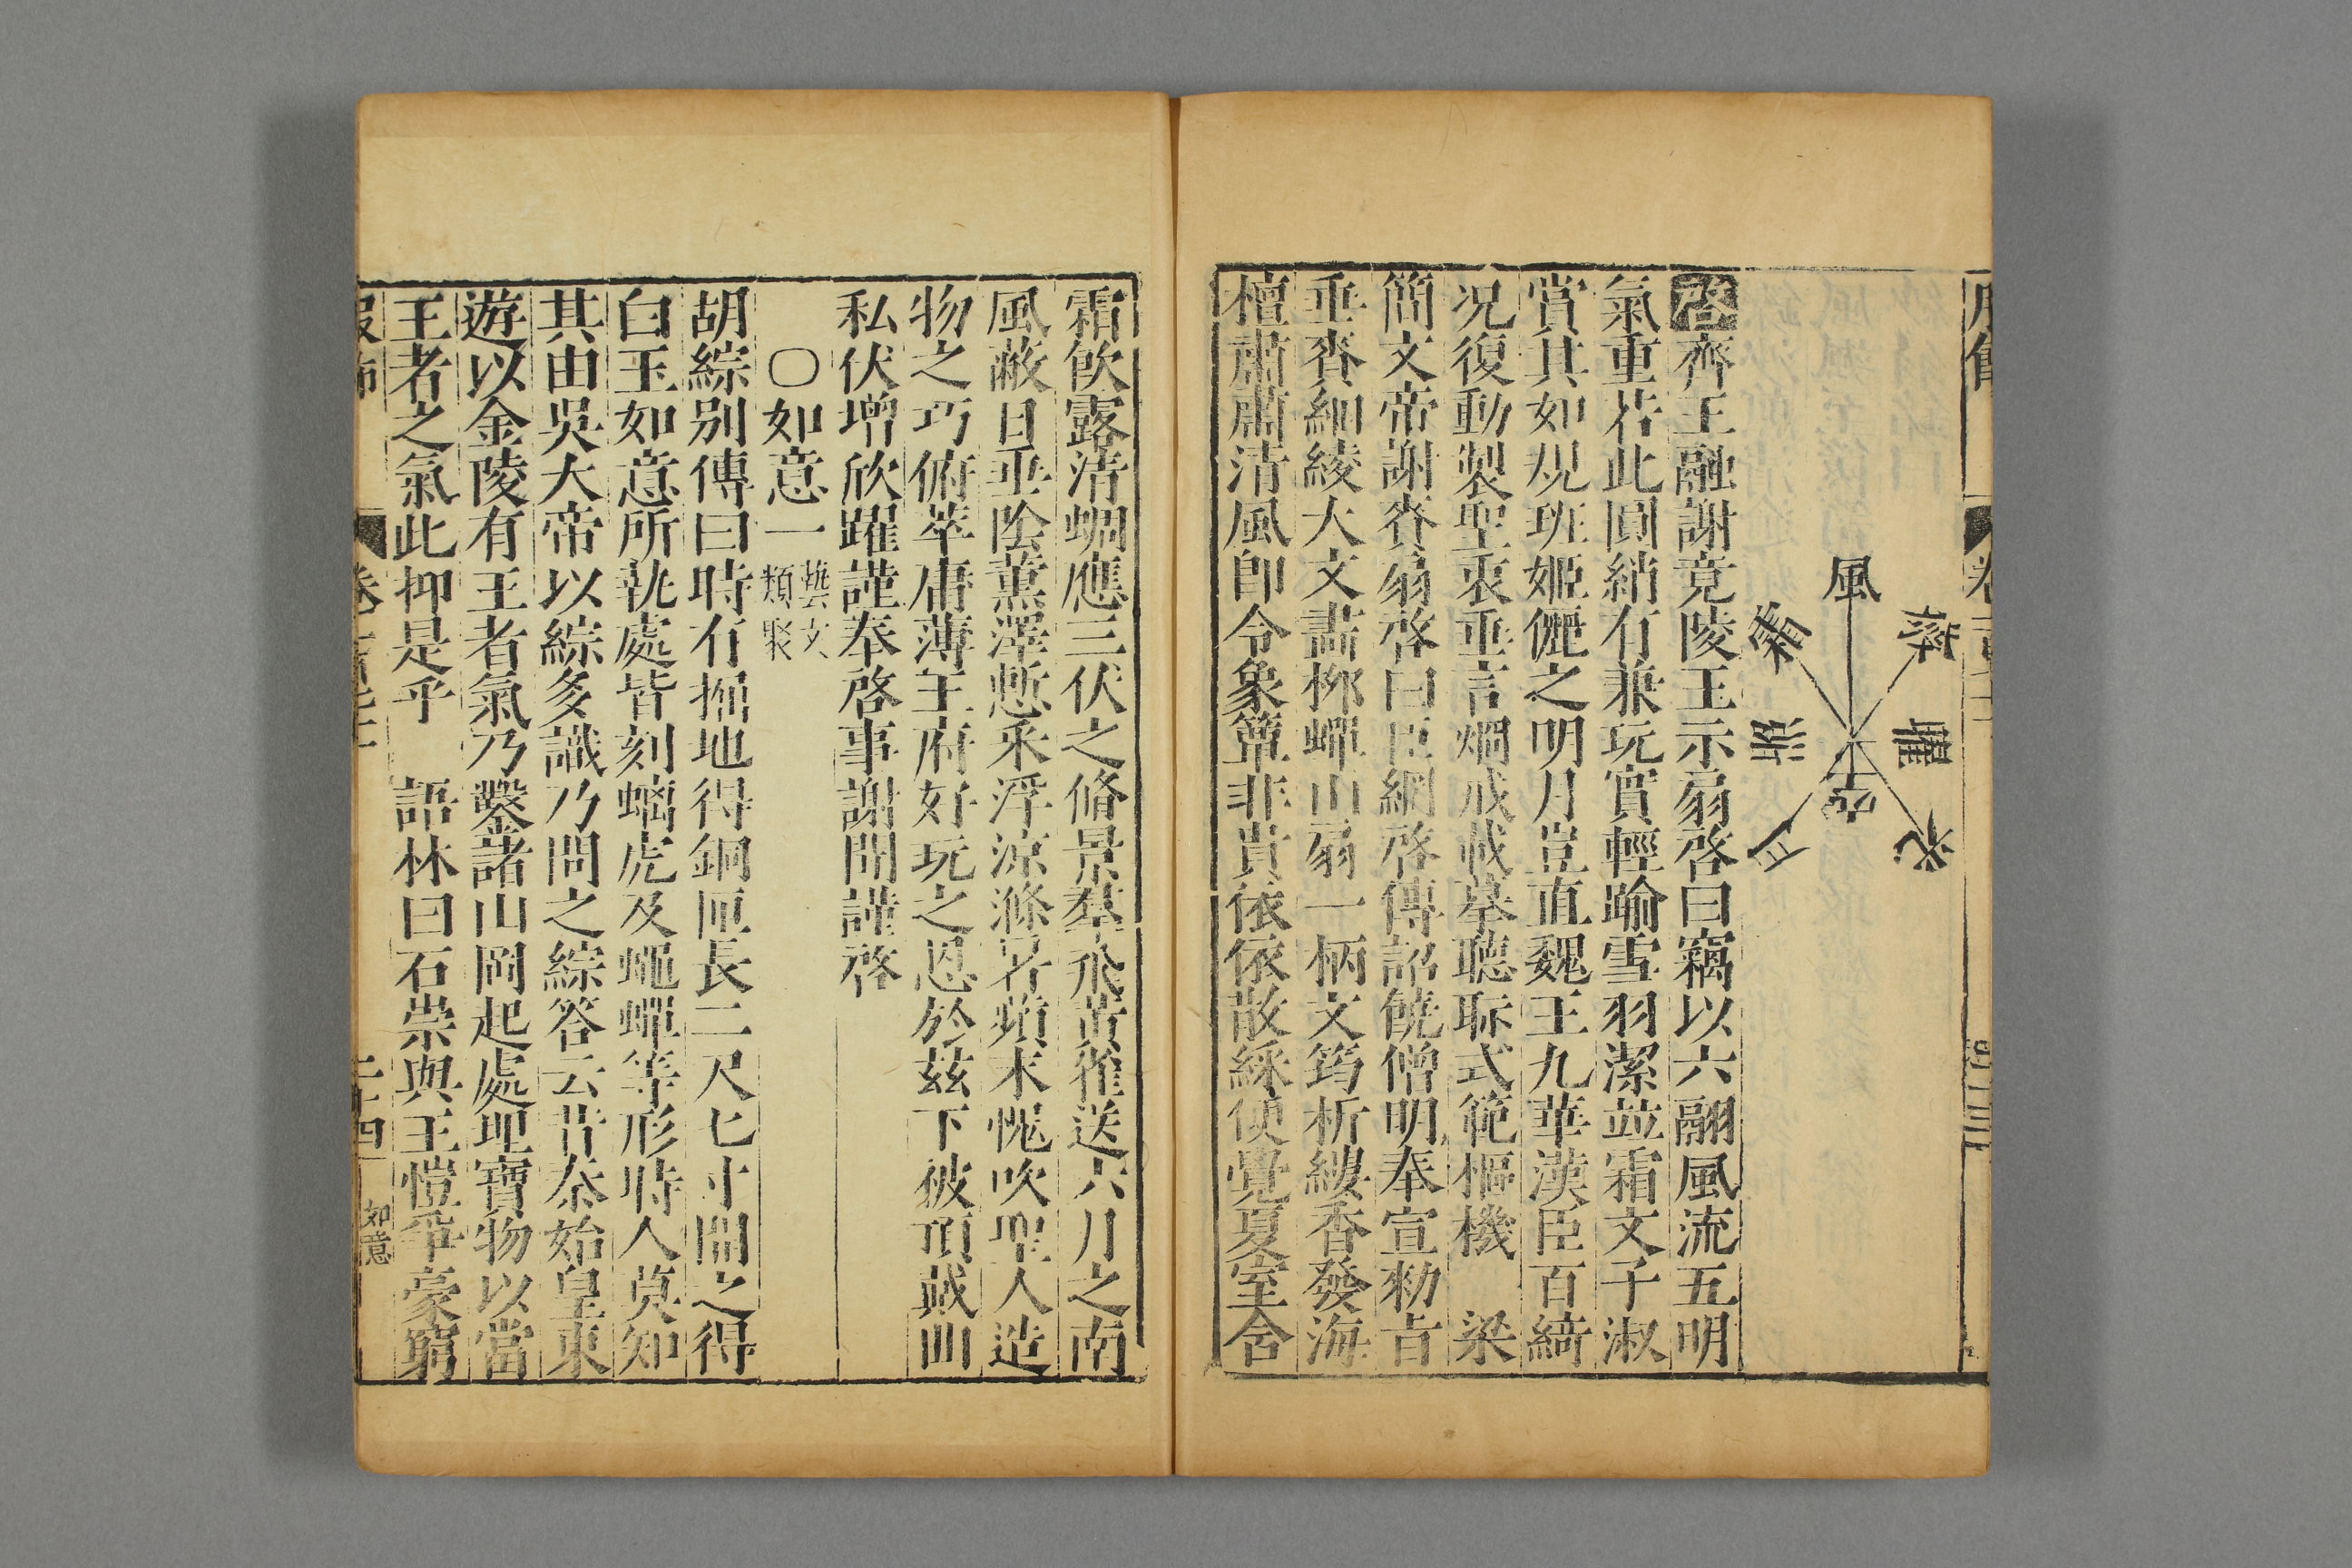 服飾
風
霜
照
月
光
耀
啓齊王融謝竟陵王示扇啓曰竊以六翮風流五明
氣重若此圓綃有兼玩實輕踰雪羽潔竝霜文子淑
賞其如規班姬儷之明月豈直魏王九華漢臣百綺
况復動製聖衷垂言烱戒載摹聽眎式範樞機　梁
簡文帝謝賚扇啓曰臣綱啓傳詔饒僧明奉宣勑旨
垂賚細綾大文畵柳蟬山扇一柄文筠析縷香發海
檀肅肅清風即令象簟非貴依依散綵便覺夏室含
霜飮露清蜩應三伏之脩景羣飛黄雀送六月之南
風蔽日垂陰薰澤慙采浮凉滌暑蘋末愧吹聖人造
物之巧俯萃庸薄王府好玩之恩於茲下被頂戴曲
私伏增欣躍謹奉啓事謝聞謹啓
〇如意一藝文類聚
胡綜别傳曰時有掘地得銅匣長二尺七寸開之得
白玉如意所執處皆刻螭虎及蠅蟬等形時人莫知
其由吳大帝以綜多識乃問之綜答云昔秦始皇東
遊以金陵有王者氣乃鑿諸山岡起處埋寶物以當
王者之氣此抑是乎　語林曰石崇與王愷爭豪窮
服飾
二十四
如意